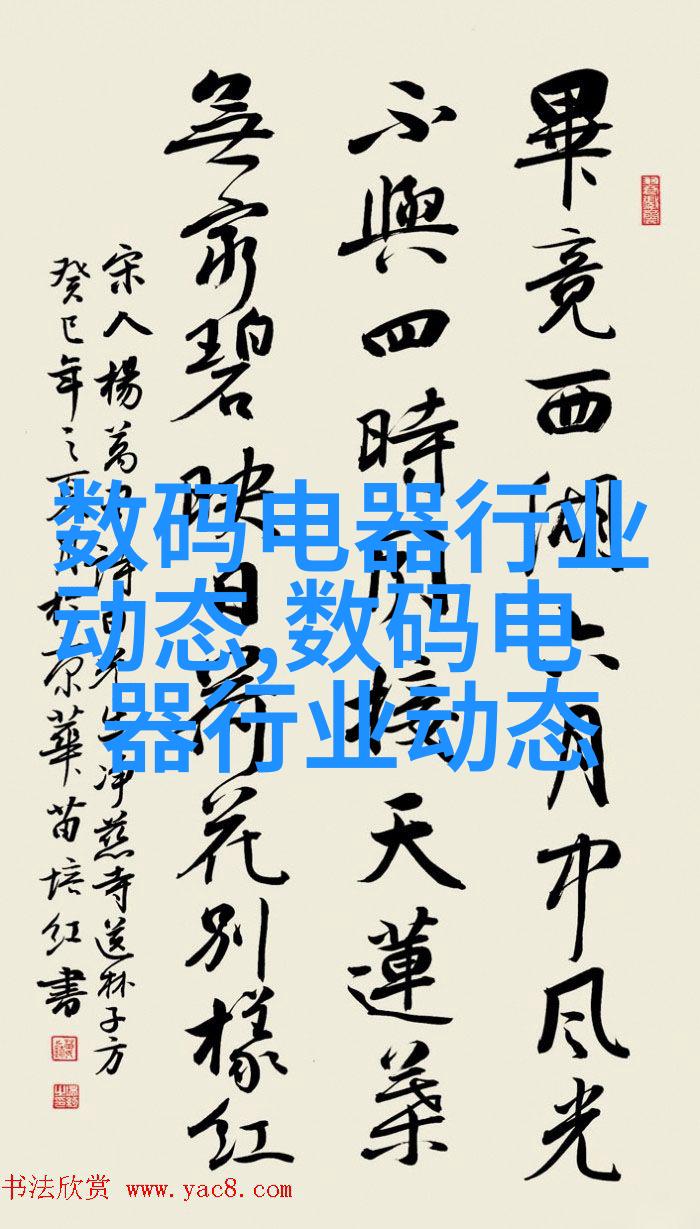 畢竟西湖六月中風光
不與四時同接天蓮葉
無窮碧映日荷花別樣紅
宋人楊萬里詩曉出净慈寺送林子方
癸巳年之夏於京華苗培红書
数码电器行业
动态,数码电
器行业动态
书法欣赏 www.yac8.com